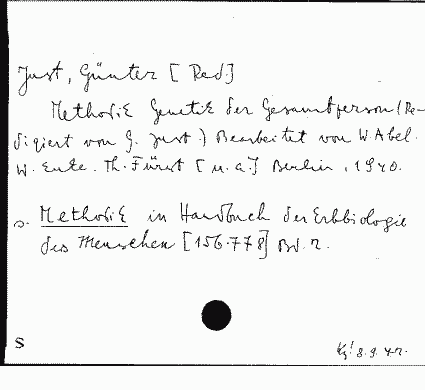 Just, Günter [Red.]
Methodik Genetik der Gesamtperson (Re-
digiert von G. Just.) Bearbeitet von W. Abel.
W. Enke. Th. Fürst [u. a.] Berlin, 1940.
s. Methodik in Handbuch der Erbbiologie
des Menschen [156.778] Bd. 2.
S
8.9.42.